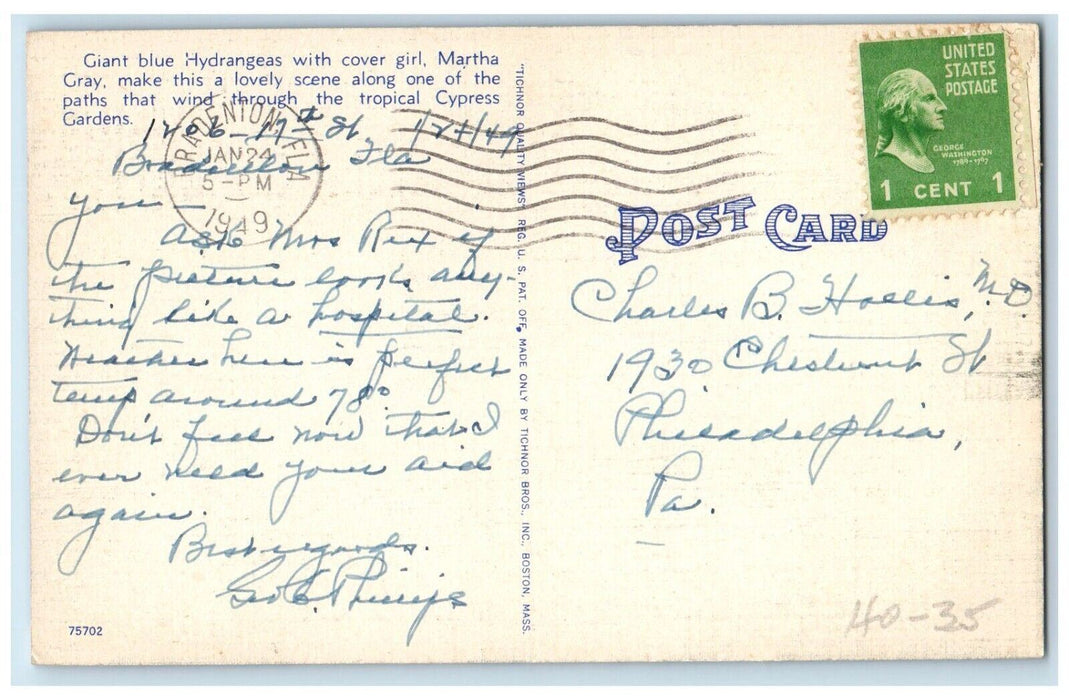 Giant blue Hydrangeas with cover girl, Martha
Gray, make this a lovely scene along one of the
paths that wind through the tropical Cypress
Gardens.
1406-17th St, 1/24/49
Bradenton Fla
BRADENTON, FLA
JAN 24
5-PM
1949
Ask Mrs Rex if
the picture looks any-
thing like a hospital.
Weather here is perfect
temp around 78°
Don't feel now that I
ever need your aid
again.
Best regards.
Geo C. Phillips
75702
"TICHNOR QUALITY VIEWS," REG. U. S. PAT. OFF. MADE ONLY BY TICHNOR BROS., INC., BOSTON, MASS.
UNITED
STATES
POSTAGE
GEORGE
WASHINGTON
1789-1797
1 CENT 1
POST CARD
Charles B. Hollis, M.D.
1930 Chestnut St
Philadelphia,
Pa.
40-35